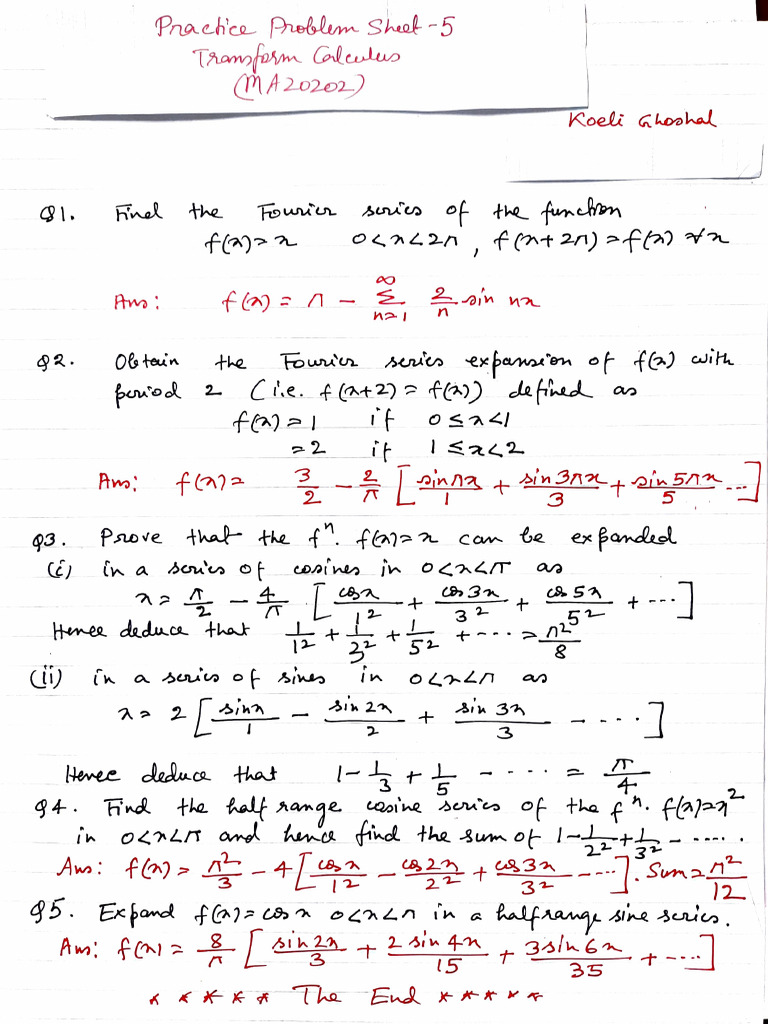 Practice Problem Sheet -5
Transform Calculus
(MA20202)
Koeli Ghoshal
Q1. Find the Fourier series of the function
f(x) = x 0<x<2π, f(x+2π) = f(x) ∀x
Ans: f(x) = π - ∑_{n=1}^{∞} 2/n sin nx
Q2. Obtain the Fourier series expansion of f(x) with
period 2 (i.e. f(x+2) = f(x)) defined as
f(x) = 1 if 0≤x<1
= 2 if 1≤x<2
Ans: f(x) = 3/2 - 2/π [ sinπx/1 + sin 3πx/3 + sin 5πx/5 ---]
Q3. Prove that the fⁿ. f(x) = x can be expanded
(i) in a series of cosines in 0<x<π as
x = π/2 - 4/π [ cosx/1² + cos 3x/3² + cos 5x/5² + ---]
Hence deduce that 1/1² + 1/3² + 1/5² + ---- = π²/8
(ii) in a series of sines in 0<x<π as
x = 2 [ sinx/1 - sin 2x/2 + sin 3x/3 - ----]
Hence deduce that 1 - 1/3 + 1/5 - ---- = π/4
Q4. Find the half range cosine series of the fⁿ. f(x)=x²
in 0<x<π and hence find the sum of 1 - 1/2² + 1/3² - ----.
Ans: f(x) = π²/3 - 4 [ cosx/1² - cos2x/2² + cos3x/3² - ---]. Sum = π²/12
Q5. Expand f(x) = cos x 0<x<π in a half range sine series.
Ans: f(x) = 8/π [ sin 2x/3 + 2 sin 4x/15 + 3 sin 6x/35 + ---]
* * * * * The End * * * * *